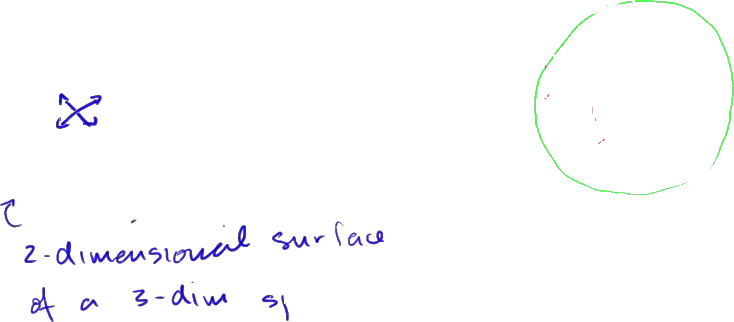 2-dimensional surface
of a 3-dim